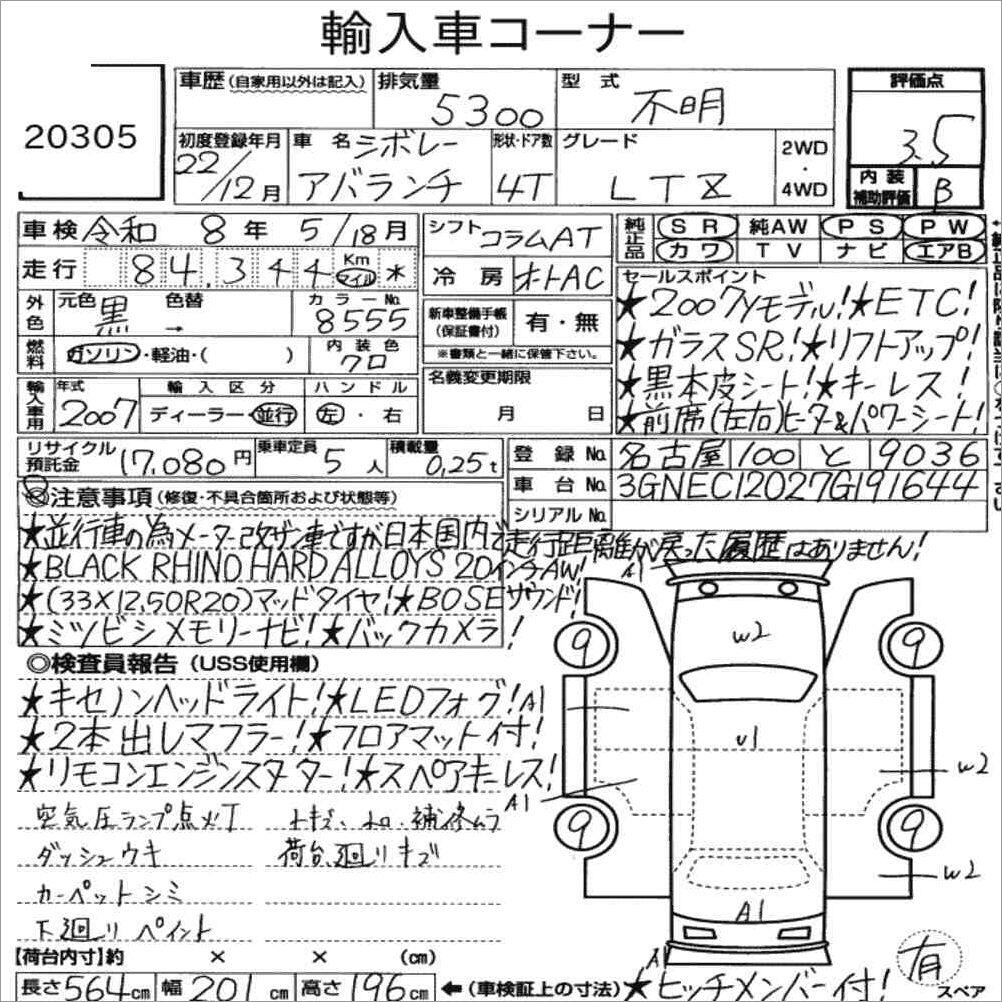 輸入車コーナー
20305
車歴 (自家用以外は記入) 排気量 5300 型式 不明 評価点 3.5
初度登録年月 22/12月 車名 シボレー アバランチ 形状・ドア数 4T グレード LTZ 2WD・4WD 内装補助評価 B
車検 令和 8年 5/18月 シフト コラムAT 純正品 SR 純AW PS PW
カワ TV ナビ エアB
走行 84,344 Km マイル * 冷房 オートAC
セールスポイント
外色 元色 黒 色替 → カラーNo. 8555 新車整備手帳(保証書付) 有・無
※書類と一緒に保管下さい。
★2007yモデル!★ETC!
★ガラスSR!★リフトアップ!
★黒本皮シート!★キーレス!
★前席(左右)ヒーター&パワーシート!
燃料 ガソリン・軽油・( ) 内装色 クロ
名義変更期限 月 日
輸入車用 年式 2007 輸入区分 ディーラー・並行 ハンドル 左・右
リサイクル預託金 17,080円 乗車定員 5人 積載量 0.25t
登録No. 名古屋 100 と 9036
車台No. 3GNEC12027G191644
シリアルNo.
◎注意事項 (修復・不具合箇所および状態等)
★並行車の為メーター改ザン車ですが日本国内で走行距離が戻った履歴はありません!
★BLACK RHINO HARD ALLOYS 20インチAW!
★(33×12.50R20)マッドタイヤ!★BOSEサウンド!
★ミツビシメモリーナビ!★バックカメラ!
◎検査員報告 (USS使用欄)
★キセノンヘッドライト!★LEDフォグ!
★2本出しマフラー!★フロアマット付!
★リモコンエンジンスターター!★スペアキーレス!
空気圧ランプ点灯
ダッシュウキ 荷台廻りキズ
カーペットシミ
下廻りペイント
A1
w2
9 9
A1
u1
w2
A1
9 9
w2
A1
A1
【荷台内寸】約 × × (cm)
長さ564cm 幅201cm 高さ196cm ←(車検証上の寸法)
★ヒッチメンバー付!
有
スペア